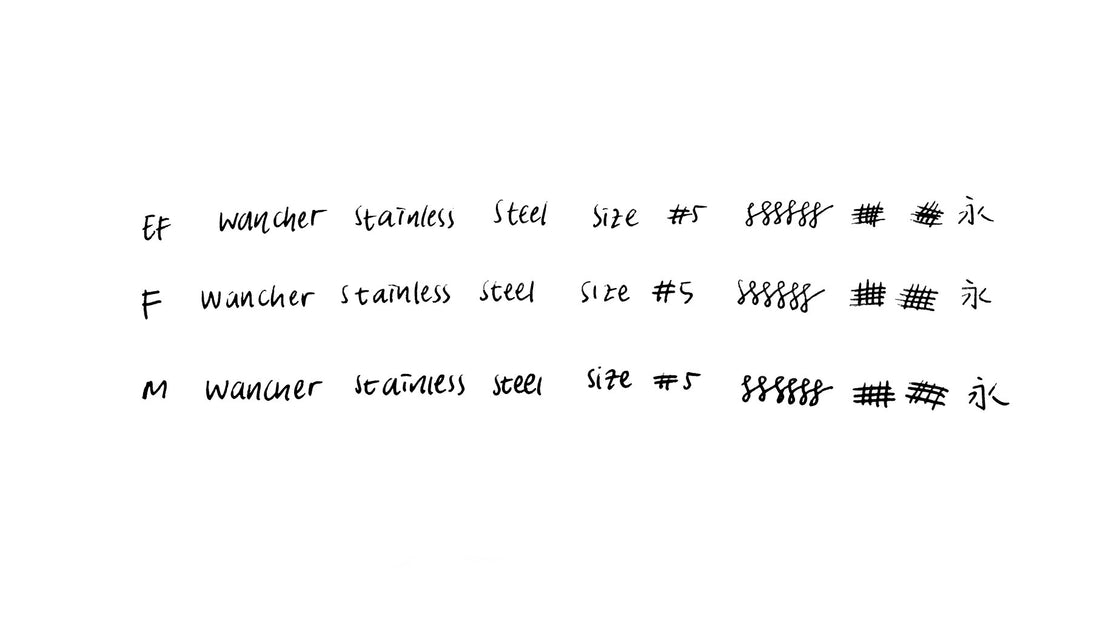 EF wancher stainless steel size #5 永
F wancher stainless steel size #5 永
M wancher stainless steel size #5 永